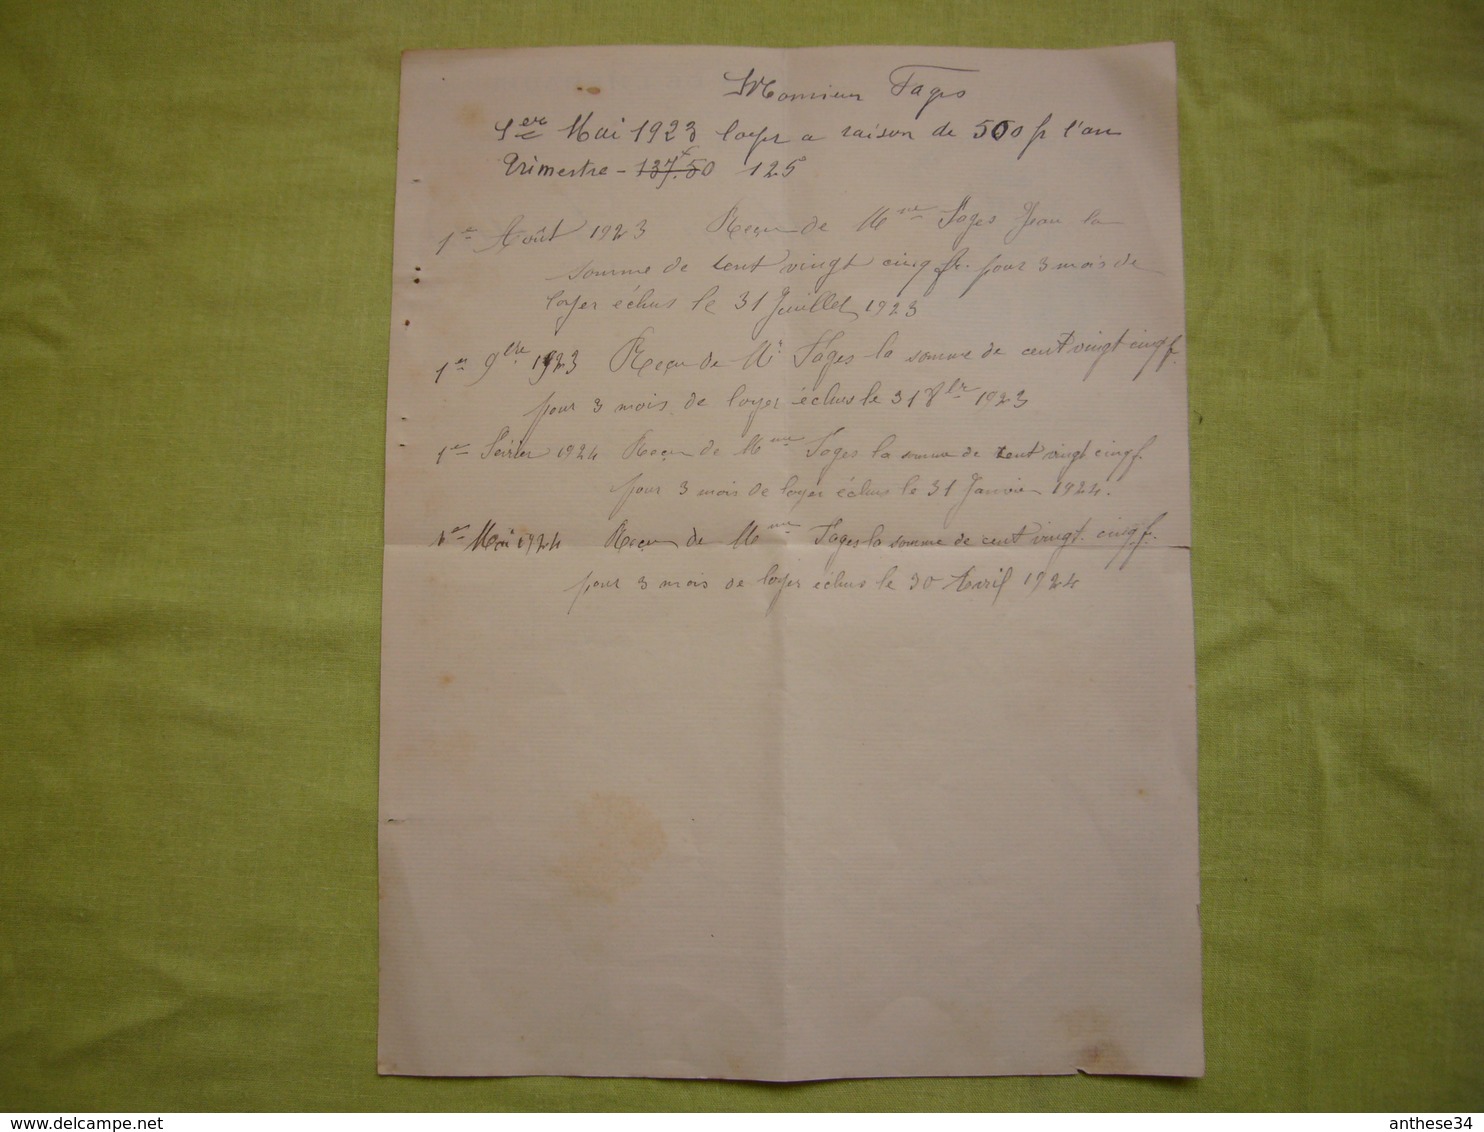 Monsieur Fages
1er Mai 1923 loyer a raison de 500 fr l'an
Trimestre - 137f.50 125
1er Août 1923 Reçu de Mme Fages Jean la
somme de cent vingt cinq fr. pour 3 mois de
loyer échus le 31 Juillet 1923
1er 9bre 1923 Reçu de Mr Fages la somme de cent vingt cinq f.
pour 3 mois de loyer échus le 31 8bre 1923
1er Février 1924 Reçu de Mme Fages la somme de cent vingt cinq f.
pour 3 mois de loyer échus le 31 Janvier 1924.
1er Mai 1924 Reçu de Mme Fages la somme de cent vingt cinq f.
pour 3 mois de loyer échus le 30 Avril 1924
delcampe.net
anthese34